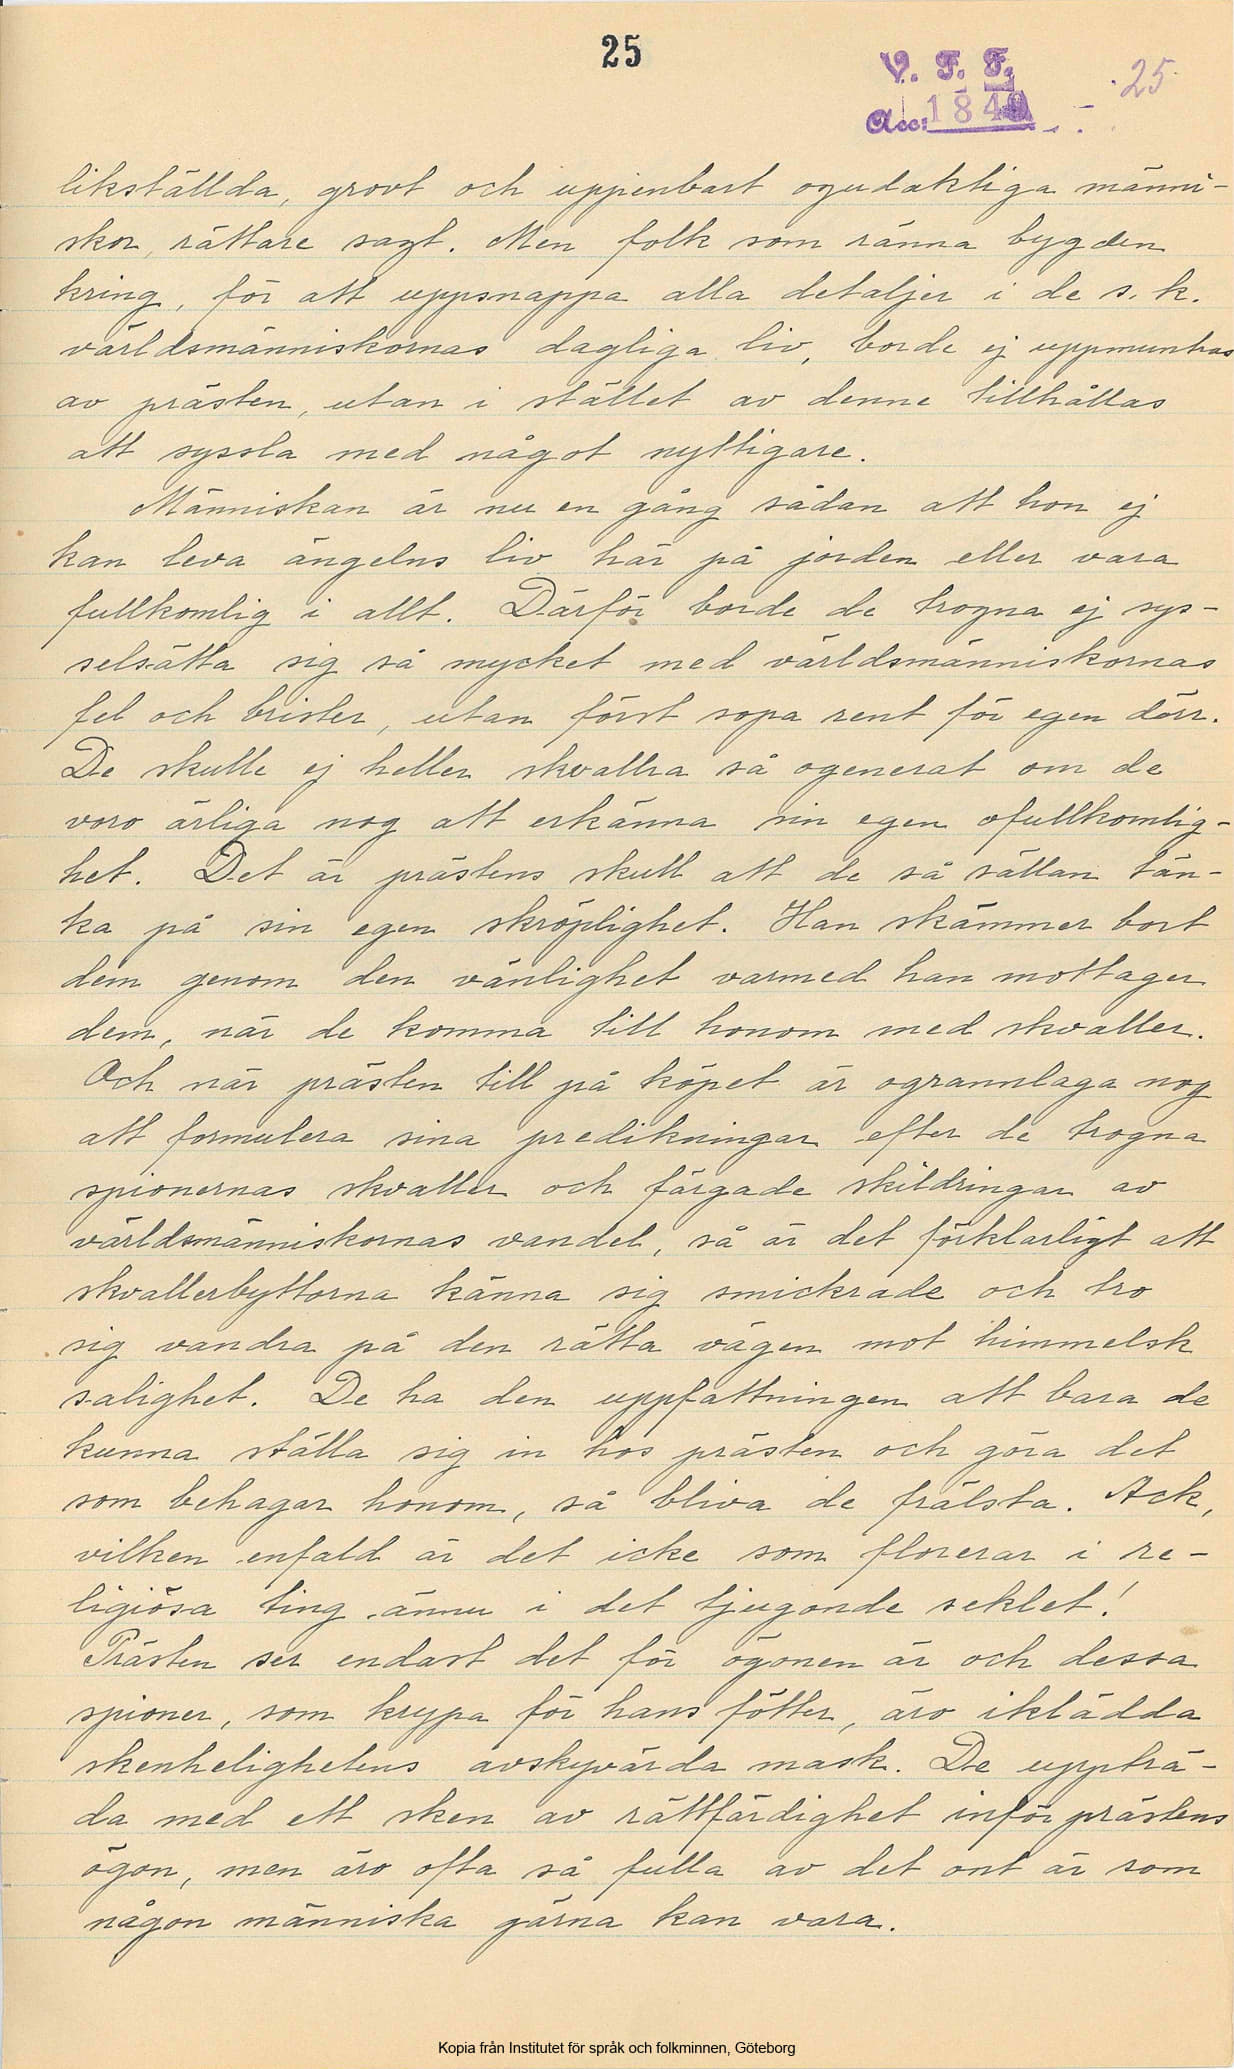 25
V. F. F.
Acc: 1840
25
likställda, grovt och uppenbart ogudaktiga männi-
skor, rättare sagt. Men folk som ränna bygden
kring, för att uppsnappa alla detaljer i de s. k.
världsmänniskornas dagliga liv, borde ej uppmuntras
av prästen, utan i stället av denne tillhållas
att syssla med något nyttigare.
Människan är nu en gång sådan att hon ej
kan leva ängelns liv här på jorden eller vara
fullkomlig i allt. Därför borde de trogna ej sys-
selsätta sig så mycket med världsmänniskornas
fel och brister, utan först sopa rent för egen dörr.
De skulle ej heller skvallra så ogenerat om de
voro ärliga nog att erkänna sin egen ofullkomlig-
het. Det är prästens skull att de så sällan tän-
ka på sin egen skröplighet. Han skämmer bort
dem genom den vänlighet varmed han mottager
dem, när de komma till honom med skvaller.
Och när prästen till på köpet är ogrannlaga nog
att formulera sina predikningar efter de trogna
spionernas skvaller och färgade skildringar av
världsmänniskornas vandel, så är det förklarligt att
skvallerbyttorna känna sig smickrade och tro
sig vandra på den rätta vägen mot himmelsk
salighet. De ha den uppfattningen att bara de
kunna ställa sig in hos prästen och göra det
som behagar honom, så bliva de frälsta. Ack,
vilken enfald är det icke som florerar i re-
ligiösa ting ännu i det tjugonde seklet!
Prästen ser endast det för ögonen är och dessa
spioner, som krypa för hans fötter, äro iklädda
skenhelighetens avskyvärda mask. De uppträ-
da med ett sken av rättfärdighet inför prästens
ögon, men äro ofta så fulla av det ont är som
någon människa gärna kan vara.
Kopia från Institutet för språk och folkminnen, Göteborg